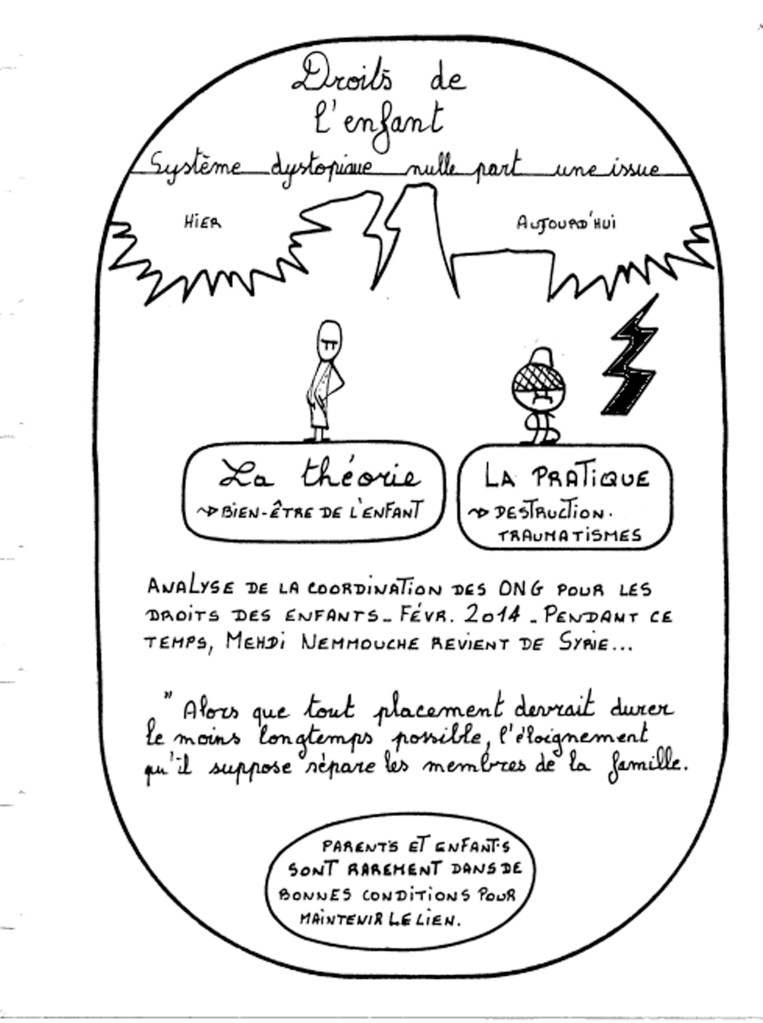 Droits de
l'enfant
Système dystopique nulle part une issue
HIER
AUJOURD'HUI
La théorie
BIEN-ÊTRE DE L'ENFANT
LA PRATIQUE
DESTRUCTION.
TRAUMATISMES
ANALYSE DE LA COORDINATION DES ONG POUR LES
DROITS DES ENFANTS_ FÉVR. 2014 _ PENDANT CE
TEMPS, MEHDI NEMMOUCHE REVIENT DE SYRIE...
" Alors que tout placement devrait durer
le moins longtemps possible, l'éloignement
qu'il suppose sépare les membres de la famille.
PARENTS ET ENFANTS
SONT RAREMENT DANS DE
BONNES CONDITIONS POUR
MAINTENIR LE LIEN.